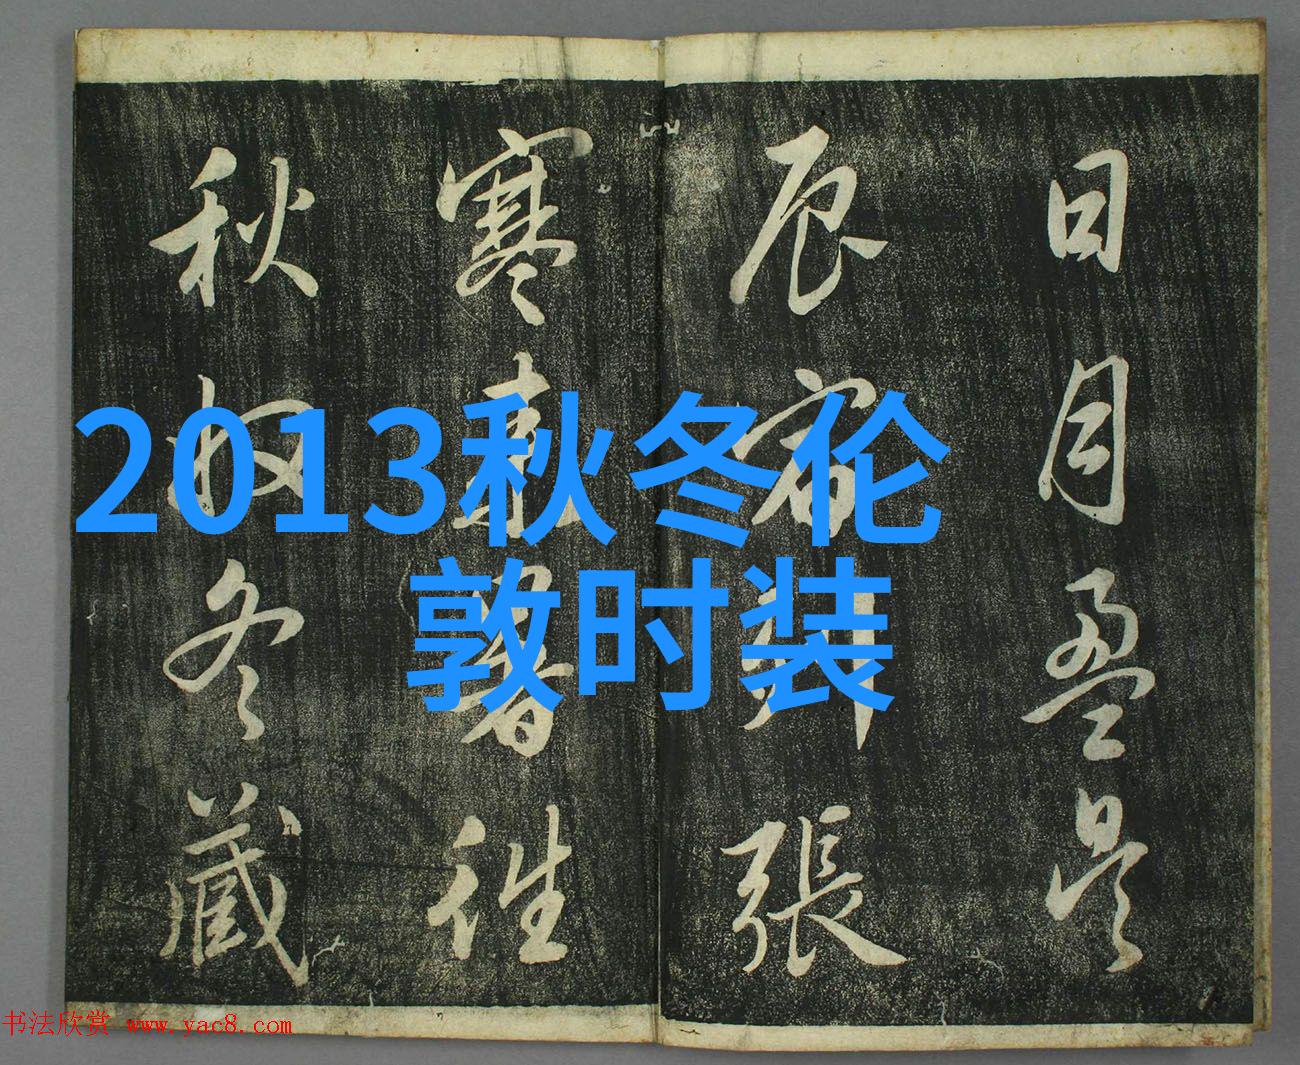 日月盈昃
辰宿列張
寒來暑往
秋收冬藏
2013秋冬伦
敦时装
书法欣赏 www.yac8.com